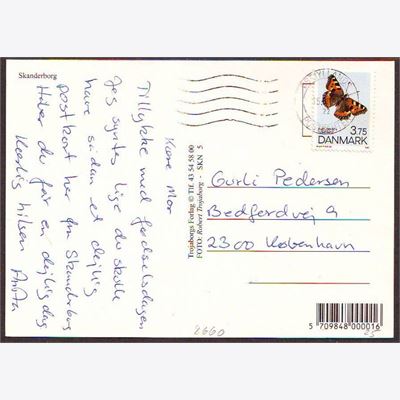 Skanderborg
Kære Mor
Tillykke med fødselsdagen
Jeg syntes lige du skulle
have sådan et dejlig
postkort her fra Skanderborg
Håber du får en dejlig dag
Kærlig hilsen Anita
Trojaborgs Forlag © Tlf. 43 54 58 00
FOTO: Robert Trojaborg - SKN 5
3.75
DANMARK
Gurli Pedersen
Bedfordvej 9
2300 København
5 709848 000016
2660
25